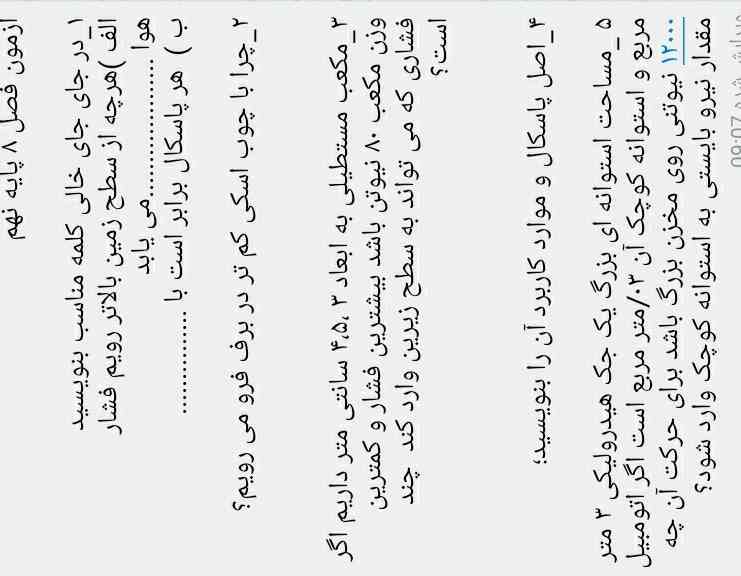 آزمون فصل ۸ پایه نهم
۱_در جای جای خالی کلمه مناسب بنویسید
الف )هرچه از سطح زمین بالاتر رویم فشار
هوا ...................... می یابد
ب ) هر پاسکال برابر است با ................
۲_چرا با چوب اسکی کم تر در برف فرو می رویم؟
۳_مکعب مستطیلی به ابعاد ۳ ،۴،۵ سانتی متر داریم اگر
وزن مکعب ۸۰ نیوتن باشد بیشترین فشار و کمترین
فشاری که می تواند به سطح زیرین وارد کند چند
است؟
۴_اصل پاسکال و موارد کاربرد آن را بنویسید؛
۵_مساحت استوانه ای بزرگ یک جک هیدرولیکی ۳ متر
مربع و استوانه کوچک آن ۰۳/متر مربع است اگر اتومبیل
۱۲۰۰۰ نیوتنی روی مخزن بزرگ باشد برای حرکت آن چه
مقدار نیرو بایستی به استوانه کوچک وارد شود؟
ویرایش شده 09:07